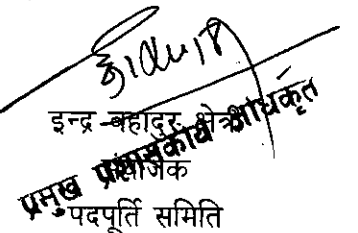 इन्द्र बहादुर क्षेत्री
प्रमुख प्रशासकीय अधिकृत
संयोजक
पदपूर्ति समिति